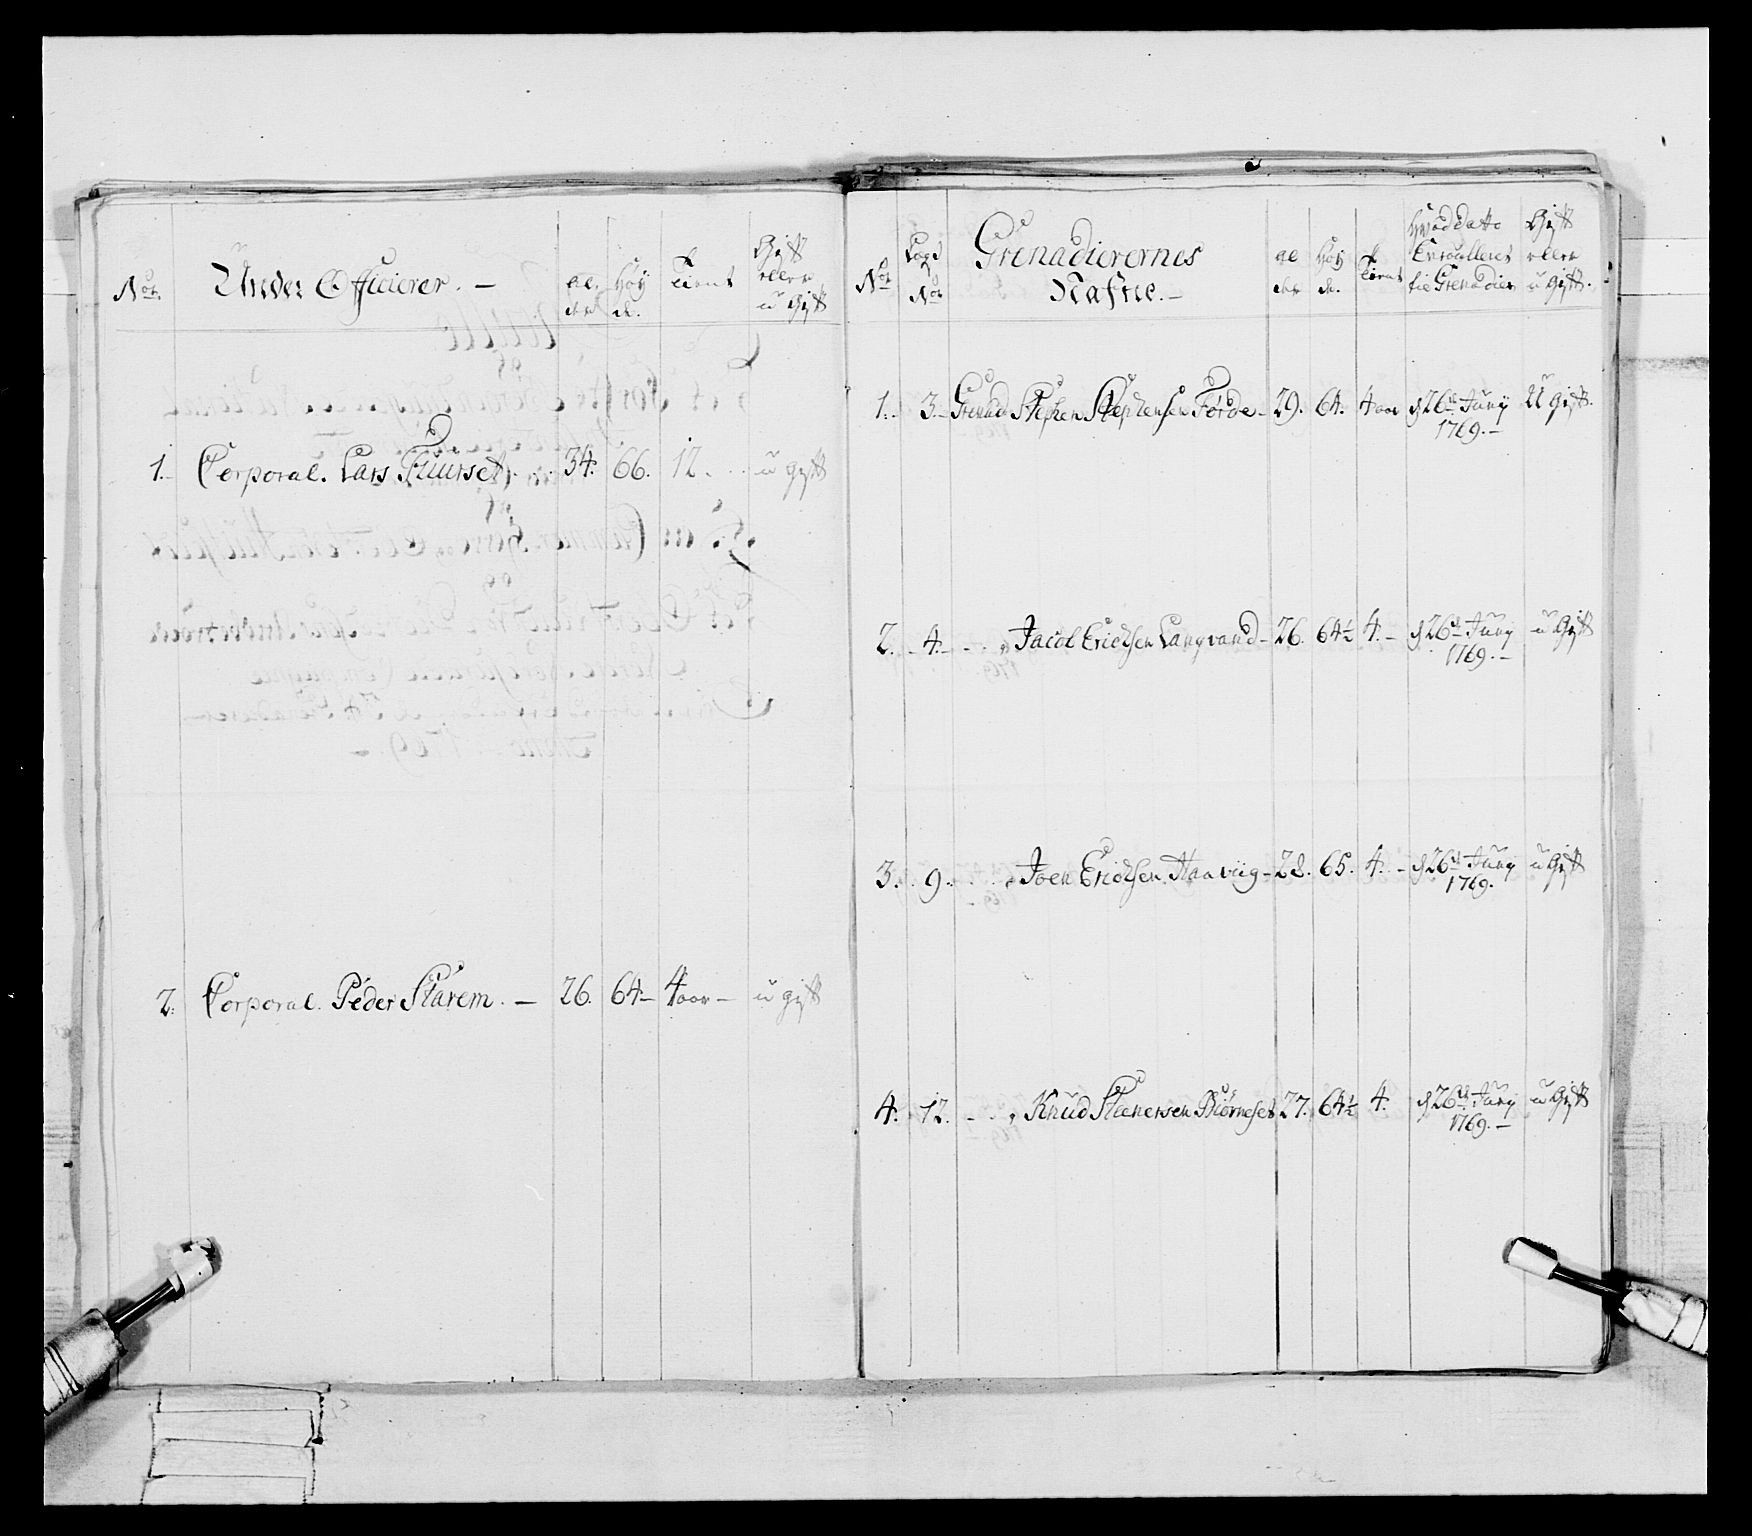 No.
Under Officierer. —
al
der
Høy
de.
Tient
Gift
eller
u Gift
1. Corporal. Lars Fuurset. 34. 66. 12. u gift
2. Corporal. Peder Starem. — 26. 64 — 4 aar — u gift
No.
Lægd
No.
Grenadierernes
Nafne. —
al
der
Høy
de.
Tient
Hvad datto
Enroulleret
til Grenadier
Gift
eller
u gift.
1. 3. Grenad Stephen Stephensen Førde — 29. 64. 4 aar d 26de Juny U gift.
1769. —
2. 4. — Jacob Erichsen Langvand — 26. 64½ 4. — d 26de Juny u Gift
1769. —
3. 9. Joen Erichsen Haaviig — 28. 65. 4. — d 26de Juny u Gift
1769.
4. 12. — Knud Biørneset 27. 64½ 4. d 26de Juny u Gift
1769. —